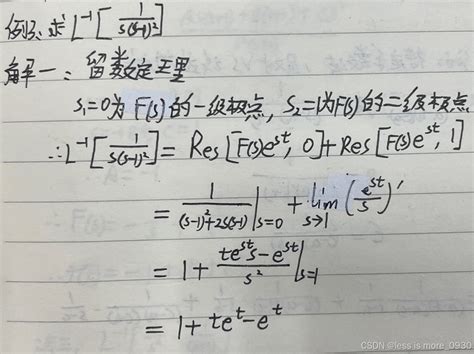 例3:求L⁻¹[1/s(s-1)²]
解一:留数定理
s₁=0为F(s)的一级极点,s₂=1为F(s)的二级极点
∴L⁻¹[1/s(s-1)²]=Res[F(s)eˢᵗ,0]+Res[F(s)eˢᵗ,1]
=1/((s-1)²+2s(s-1))|s=0+lim s→1(eˢᵗ/s)'
=1+(teˢᵗs-eˢᵗ)/s²|s=1
=1+teᵗ-eᵗ
CSDN @less is more_0930